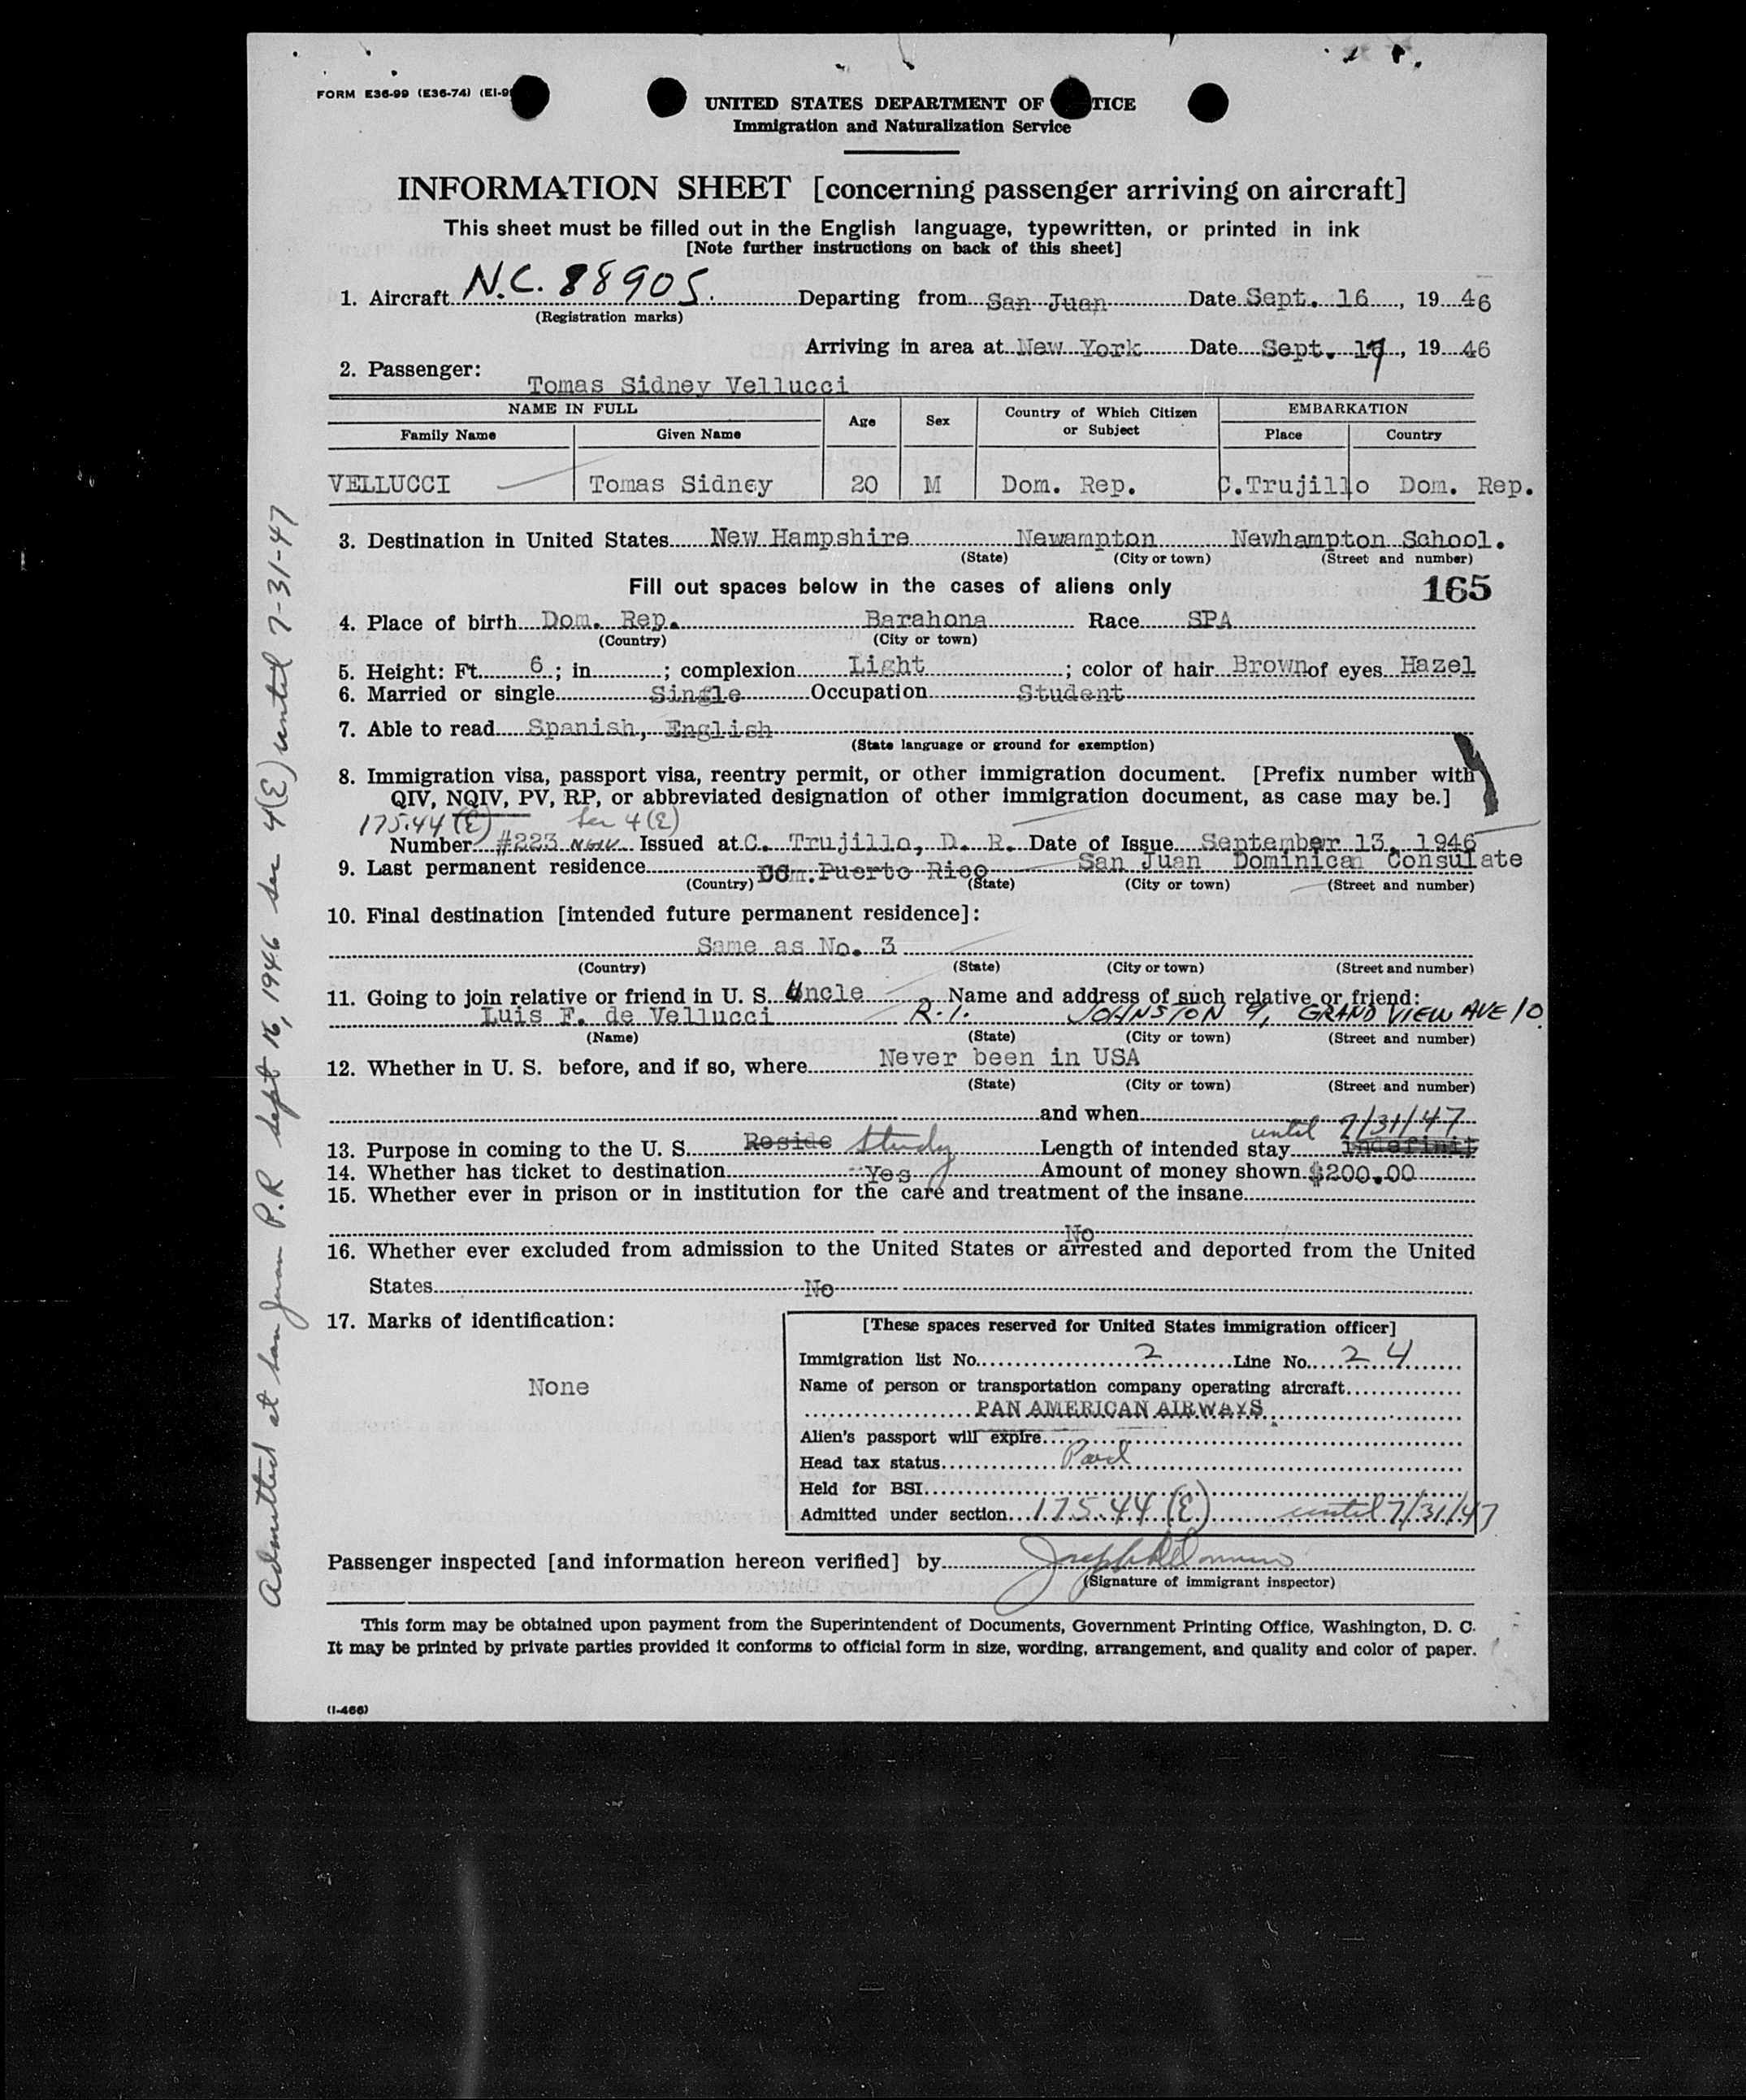 FORM E36-99 (E36-74) (EI-9
UNITED STATES DEPARTMENT OF TICE
Immigration and Naturalization Service
INFORMATION SHEET [concerning passenger arriving on aircraft]
This sheet must be filled out in the English language, typewritten, or printed in ink
[Note further instructions on back of this sheet]
1. Aircraft N.C. 88905. Departing from San Juan Date Sept. 16, 19 46
(Registration marks)
Arriving in area at New York Date Sept. 17, 19 46
2. Passenger:
Tomas Sidney Vellucci
NAME IN FULL Age Sex Country of Which Citizen or Subject EMBARKATION
Family Name Given Name Place Country
VELLUCCI Tomas Sidney 20 M Dom. Rep. C.Trujillo Dom. Rep.
3. Destination in United States New Hampshire Newampton Newhampton School.
(State) (City or town) (Street and number)
Fill out spaces below in the cases of aliens only 165
4. Place of birth Dom. Rep. Barahona Race SPA
(Country) (City or town)
5. Height: Ft. 6 ; in. ; complexion Light ; color of hair Brown of eyes Hazel
6. Married or single Single Occupation Student
7. Able to read Spanish, English
(State language or ground for exemption)
8. Immigration visa, passport visa, reentry permit, or other immigration document. [Prefix number with
QIV, NQIV, PV, RP, or abbreviated designation of other immigration document, as case may be.]
175.44 (E) Sec 4(E)
Number #223 Issued at C. Trujillo, D. R. Date of Issue September 13, 1946
9. Last permanent residence Puerto Rico San Juan Dominican Consulate
(Country) (State) (City or town) (Street and number)
10. Final destination [intended future permanent residence]:
Same as No. 3
(Country) (State) (City or town) (Street and number)
11. Going to join relative or friend in U. S. Uncle Name and address of such relative or friend:
Luis F. de Vellucci R.I. JOHNSTON 9, GRAND VIEW AVE 10
(Name) (State) (City or town) (Street and number)
12. Whether in U. S. before, and if so, where Never been in USA
(State) (City or town) (Street and number)
and when
until 7/31/47
13. Purpose in coming to the U. S. Reside Study Length of intended stay Indefinit
14. Whether has ticket to destination Yes Amount of money shown $200.00
15. Whether ever in prison or in institution for the care and treatment of the insane
No
16. Whether ever excluded from admission to the United States or arrested and deported from the United
States No
17. Marks of identification:
None
[These spaces reserved for United States immigration officer]
Immigration list No. 2 Line No. 24
Name of person or transportation company operating aircraft
PAN AMERICAN AIRWAYS
Alien's passport will expire
Head tax status Paid
Held for BSI
Admitted under section 175.44 (E) until 7/31/47
Passenger inspected [and information hereon verified] by
(Signature of immigrant inspector)
This form may be obtained upon payment from the Superintendent of Documents, Government Printing Office, Washington, D. C.
It may be printed by private parties provided it conforms to official form in size, wording, arrangement, and quality and color of paper.
(I-466)
Admitted at San Juan P.R Sept 16, 1946 Sec 4(E) until 7-31-47